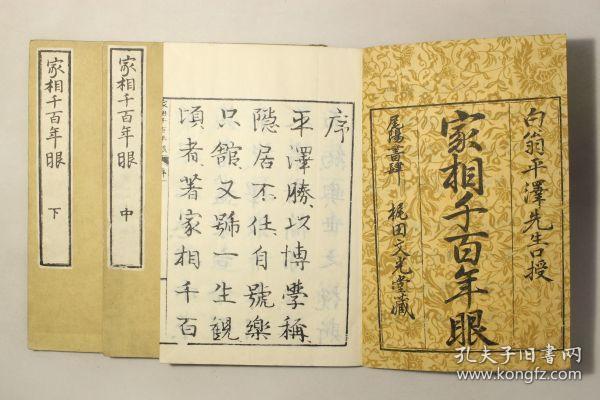 白翁平澤先生口授
家相千百年眼
尾陽書肆 梶田文光堂藏
序
平澤勝以博學稱
隱居不仕自號樂
只館又號一生觀
頃者著家相千百
家相千百年眼 中
家相千百年眼 下
孔夫子旧书网
www.kongfz.com